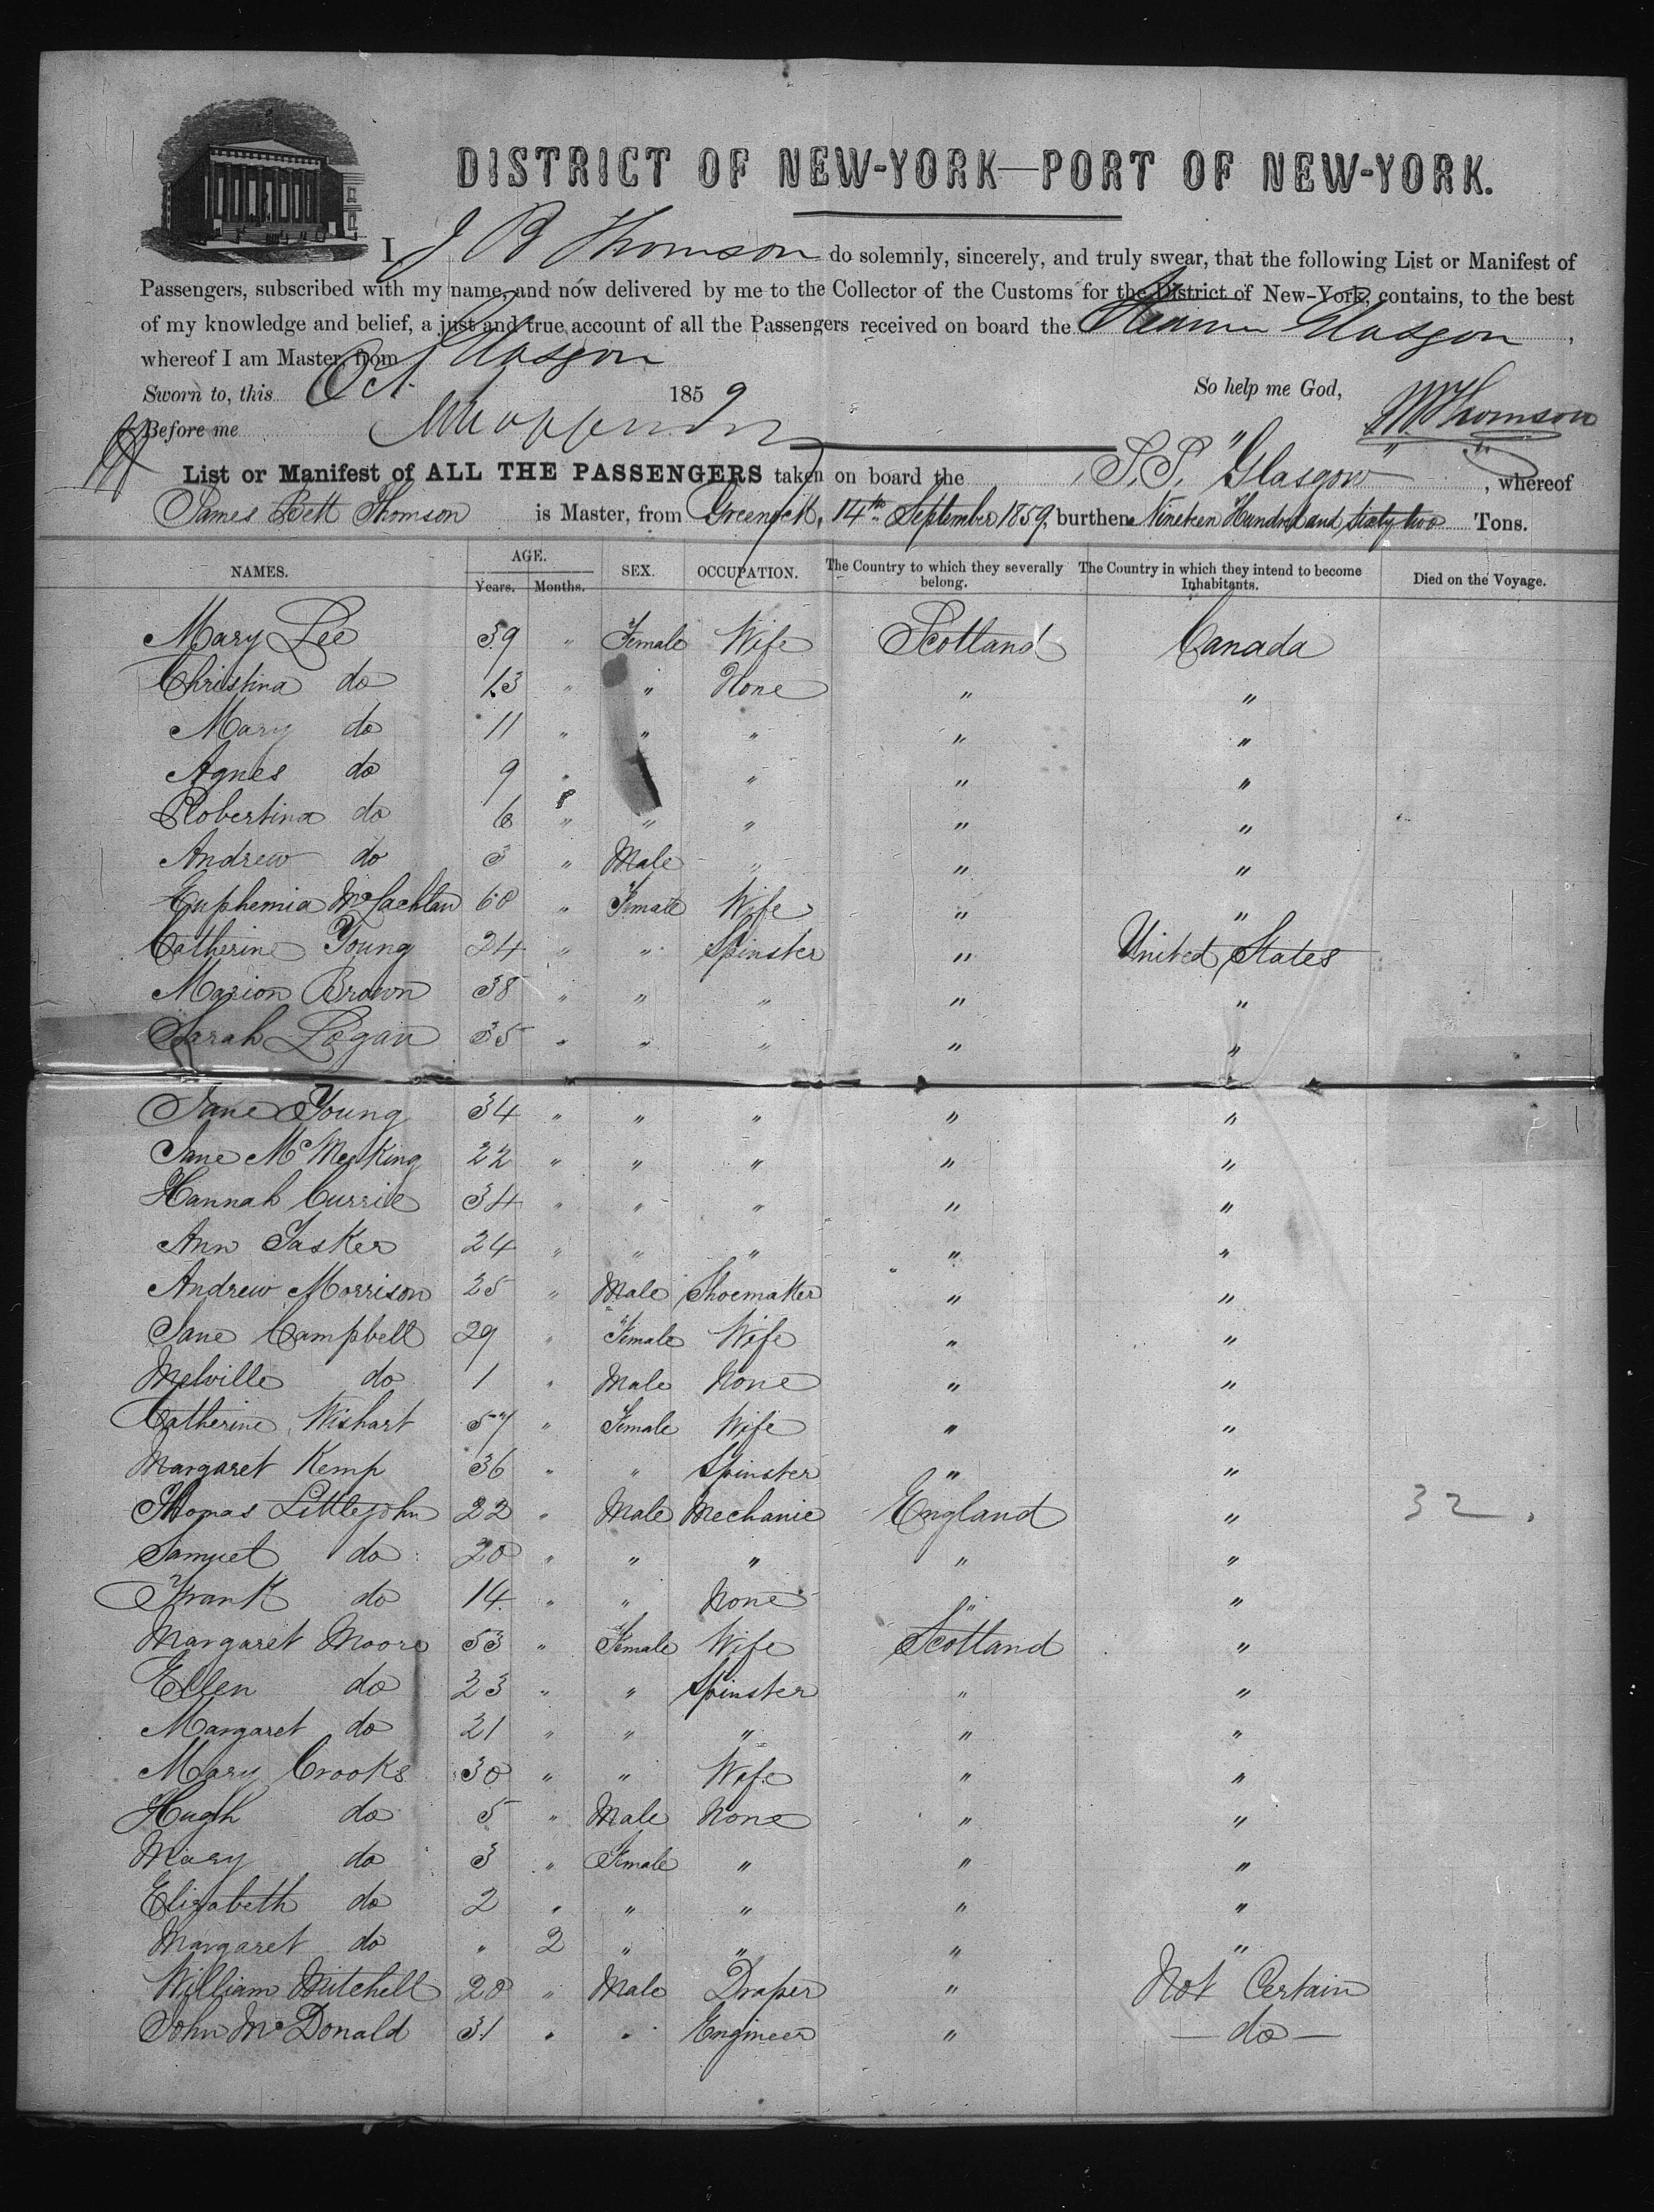 DISTRICT OF NEW-YORK—PORT OF NEW-YORK.
I, J B Thomson do solemnly, sincerely, and truly swear, that the following List or Manifest of
Passengers, subscribed with my name, and now delivered by me to the Collector of the Customs for the District of New-York, contains, to the best
of my knowledge and belief, a just and true account of all the Passengers received on board the Steamer Glasgow,
whereof I am Master, from Glasgow
Sworn to, this Oct 1859 So help me God, Thomson
Before me
List or Manifest of ALL THE PASSENGERS taken on board the S.S. "Glasgow", whereof
James Bett Thomson is Master, from Greenock, 14th September 1859, burthen Nineteen Hundred and sixty two Tons.
NAMES. AGE. Years. Months. SEX. OCCUPATION. The Country to which they severally belong. The Country in which they intend to become Inhabitants. Died on the Voyage.
Mary Lee 39 " Female Wife Scotland Canada
Christina do 13 " " None " "
Mary do 11 " " " " "
Agnes do 9 " " " "
Robertina do 6 " " " " "
Andrew do 3 " Male " " "
Euphemia McLachlan 60 " Female Wife " "
Catherine Young 24 " " Spinster " United States
Marion Brown 38 " " " " "
Sarah Logan 35 " " " " "
Jane Young 34 " " " " "
Jane McMeeking 22 " " " " "
Hannah Currie 34 " " " " "
Ann Tasker 24 " " " " "
Andrew Morrison 25 " Male Shoemaker " "
Jane Campbell 29 " Female Wife " "
Melville do 1 " Male None " "
Catherine Wishart 57 " Female Wife " "
Margaret Kemp 36 " " Spinster " "
Thomas Littlejohn 22 " Male Mechanic England " 32
Samuel do 20 " " " " "
Frank do 14 " " None " "
Margaret Moore 53 " Female Wife Scotland "
Ellen do 23 " " Spinster " "
Margaret do 21 " " " " "
Mary Crooks 30 " " Wife " "
Hugh do 5 " Male None " "
Mary do 3 " Female " " "
Elizabeth do 2 " " " " "
Margaret do " 2 " " " "
William Mitchell 20 " Male Draper " Not Certain
John McDonald 31 " " Engineer " — do —